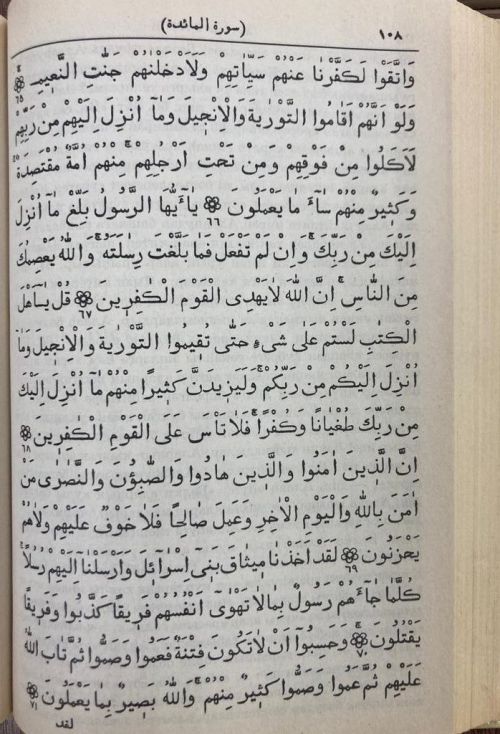 (سورة المائدة) ١٠٨
وَاتَّقَوْا لَكَفَّرْنَا عَنْهُمْ سَيِّاٰتِهِمْ وَلَاَدْخَلْنٰهُمْ جَنَّاتِ النَّعٖيمِ ٦٥
وَلَوْ اَنَّهُمْ اَقَامُوا التَّوْرٰيةَ وَالْاِنْجٖيلَ وَمَٓا اُنْزِلَ اِلَيْهِمْ مِنْ رَبِّهِمْ
لَاَكَلُوا مِنْ فَوْقِهِمْ وَمِنْ تَحْتِ اَرْجُلِهِمْ مِنْهُمْ اُمَّةٌ مُقْتَصِدَةٌ
وَكَثٖيرٌ مِنْهُمْ سَٓاءَ مَا يَعْمَلُونَ ٦٦ يَٓا اَيُّهَا الرَّسُولُ بَلِّغْ مَٓا اُنْزِلَ
اِلَيْكَ مِنْ رَبِّكَ وَاِنْ لَمْ تَفْعَلْ فَمَا بَلَّغْتَ رِسَالَتَهُ وَاللّٰهُ يَعْصِمُكَ
مِنَ النَّاسِ اِنَّ اللّٰهَ لَا يَهْدِى الْقَوْمَ الْكَافِرٖينَ ٦٧ قُلْ يَٓا اَهْلَ
الْكِتَابِ لَسْتُمْ عَلٰى شَىْءٍ حَتّٰى تُقٖيمُوا التَّوْرٰيةَ وَالْاِنْجٖيلَ وَمَٓا
اُنْزِلَ اِلَيْكُمْ مِنْ رَبِّكُمْ وَلَيَزٖيدَنَّ كَثٖيرًا مِنْهُمْ مَٓا اُنْزِلَ اِلَيْكَ
مِنْ رَبِّكَ طُغْيَانًا وَكُفْرًا فَلَا تَاْسَ عَلَى الْقَوْمِ الْكَافِرٖينَ ٦٨
اِنَّ الَّذٖينَ اٰمَنُوا وَالَّذٖينَ هَادُوا وَالصَّابِؤُنَ وَالنَّصَارٰى مَنْ
اٰمَنَ بِاللّٰهِ وَالْيَوْمِ الْاٰخِرِ وَعَمِلَ صَالِحًا فَلَا خَوْفٌ عَلَيْهِمْ وَلَا هُمْ
يَحْزَنُونَ ٦٩ لَقَدْ اَخَذْنَا مٖيثَاقَ بَنٖٓى اِسْرَٓائٖلَ وَاَرْسَلْنَٓا اِلَيْهِمْ رُسُلًا
كُلَّمَا جَٓاءَهُمْ رَسُولٌ بِمَا لَا تَهْوٰٓى اَنْفُسُهُمْ فَرٖيقًا كَذَّبُوا وَفَرٖيقًا
يَقْتُلُونَ ٧٠ وَحَسِبُٓوا اَلَّا تَكُونَ فِتْنَةٌ فَعَمُوا وَصَمُّوا ثُمَّ تَابَ اللّٰهُ
عَلَيْهِمْ ثُمَّ عَمُوا وَصَمُّوا كَثٖيرٌ مِنْهُمْ وَاللّٰهُ بَصٖيرٌ بِمَا يَعْمَلُونَ ٧١
لقد